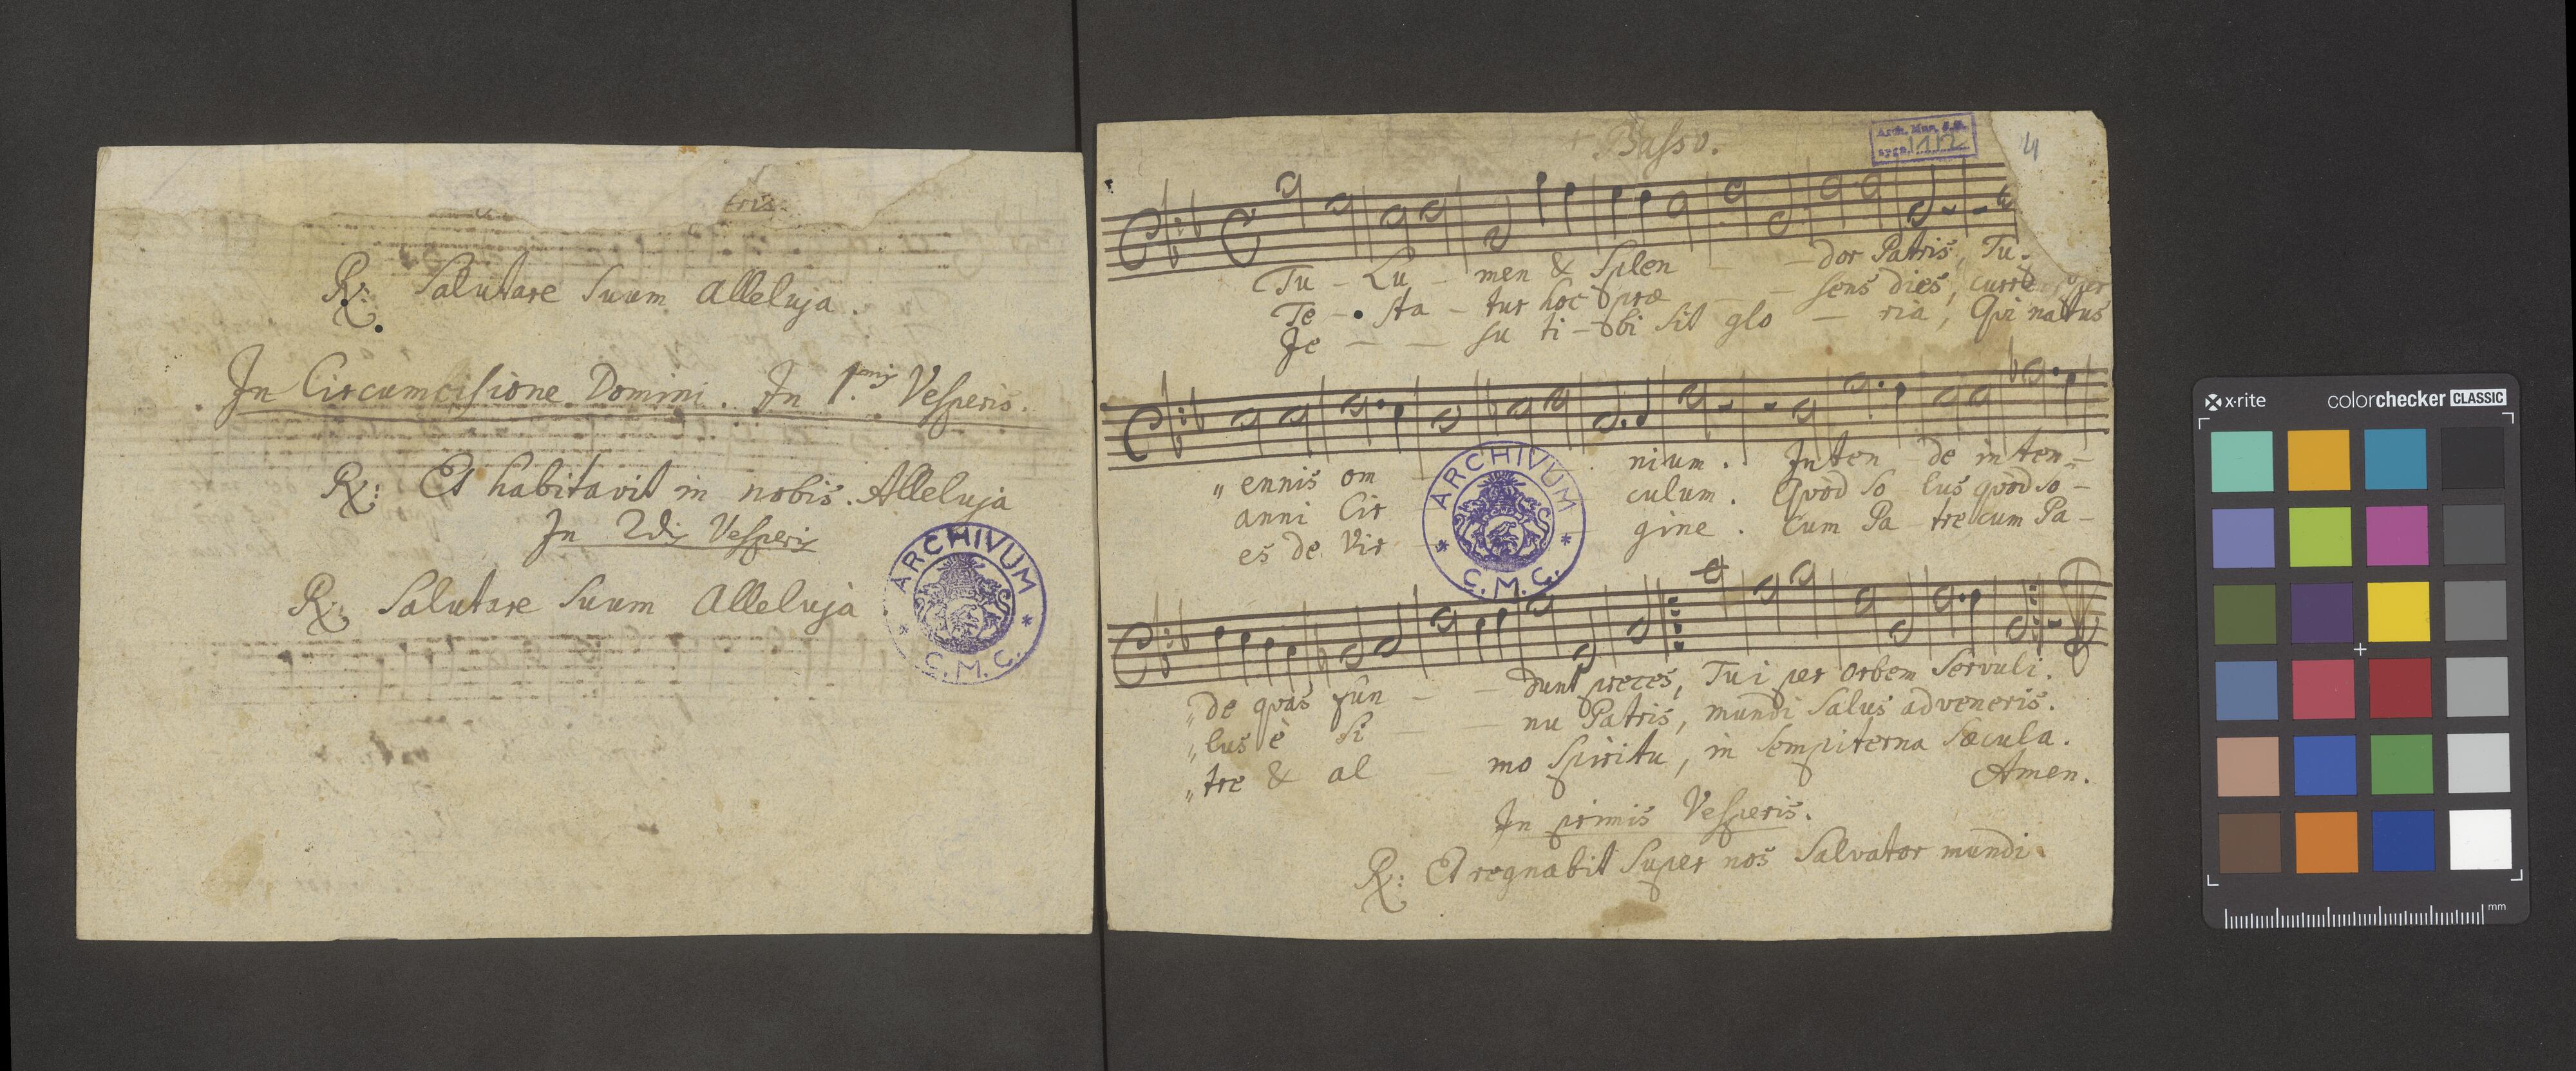 tris
R: Salutare Suum Alleluja.
In Circumcisione Domini. In 1.mis Vesperis.
R: Et habitavit in nobis. Alleluja
In 2dis Vesperis
R: Salutare Suum Alleluja
ARCHIVUM * C.M.C. *
Basso.
Arch. Mus. 1112
4
Tu - Lu - men & Splen - - dor Patris, Tu.
Te - sta - tur hoc præ - - sens dies, currens per
Je - - su ti - bi sit glo - ria, Qvi natus
" ennis om nium. Inten de inten-
anni Cir culum. Qvòd so lus qvòd so-
es de Vir gine. Cum Pa tre cum Pa-
ARCHIVUM * C.M.C. *
" de qvas fûn - - dunt preces, Tui per orbem Servuli.
" lus è Si - - nu Patris, mundi Salus adveneris.
" tre & al - mo Spiritu, in sempiterna Sæcula.
Amen.
In primis Vesperis.
R: Et regnabit Super nos Salvator mundi.
x·rite colorchecker CLASSIC
mm